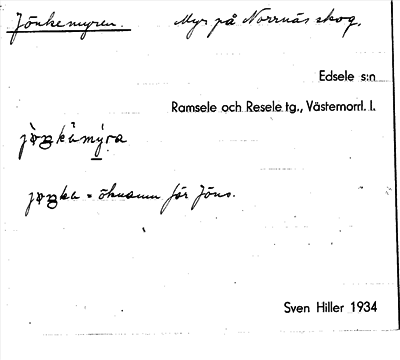 Jönkemyren. Myr på Norrnäs skog.
Edsele s:n
Ramsele och Resele tg., Västernorrl. l.
jöŋkämýra
jöŋka = öknamn för Jöns.
Sven Hiller 1934